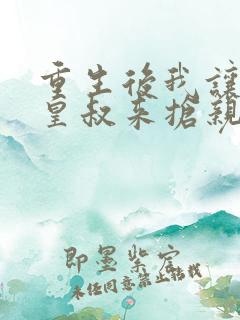 重生後我讓
皇叔来搶親
即墨紫宸
未经同意禁止转载